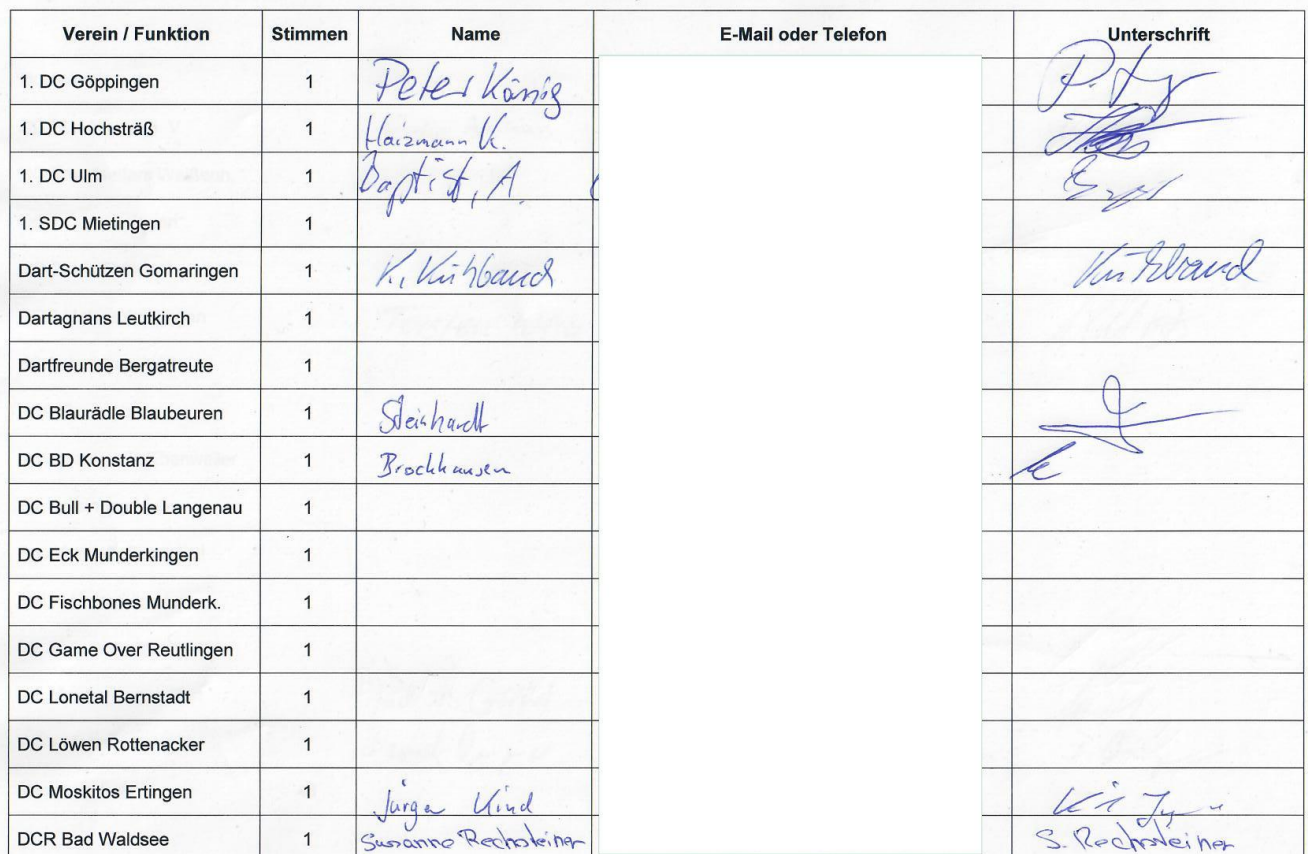 Verein / Funktion Stimmen Name E-Mail oder Telefon Unterschrift
1. DC Göppingen 1 Peter König
1. DC Hochsträß 1 Haizmann K.
1. DC Ulm 1 Baptist, A.
1. SDC Mietingen 1
Dart-Schützen Gomaringen 1 K. Kühbauch Kühbauch
Dartagnans Leutkirch 1
Dartfreunde Bergatreute 1
DC Blaurädle Blaubeuren 1 Steinhardt
DC BD Konstanz 1 Brockhausen
DC Bull + Double Langenau 1
DC Eck Munderkingen 1
DC Fischbones Munderk. 1
DC Game Over Reutlingen 1
DC Lonetal Bernstadt 1
DC Löwen Rottenacker 1
DC Moskitos Ertingen 1 Jürgen Kind
DCR Bad Waldsee 1 Susanne Rechsteiner S. Rechsteiner